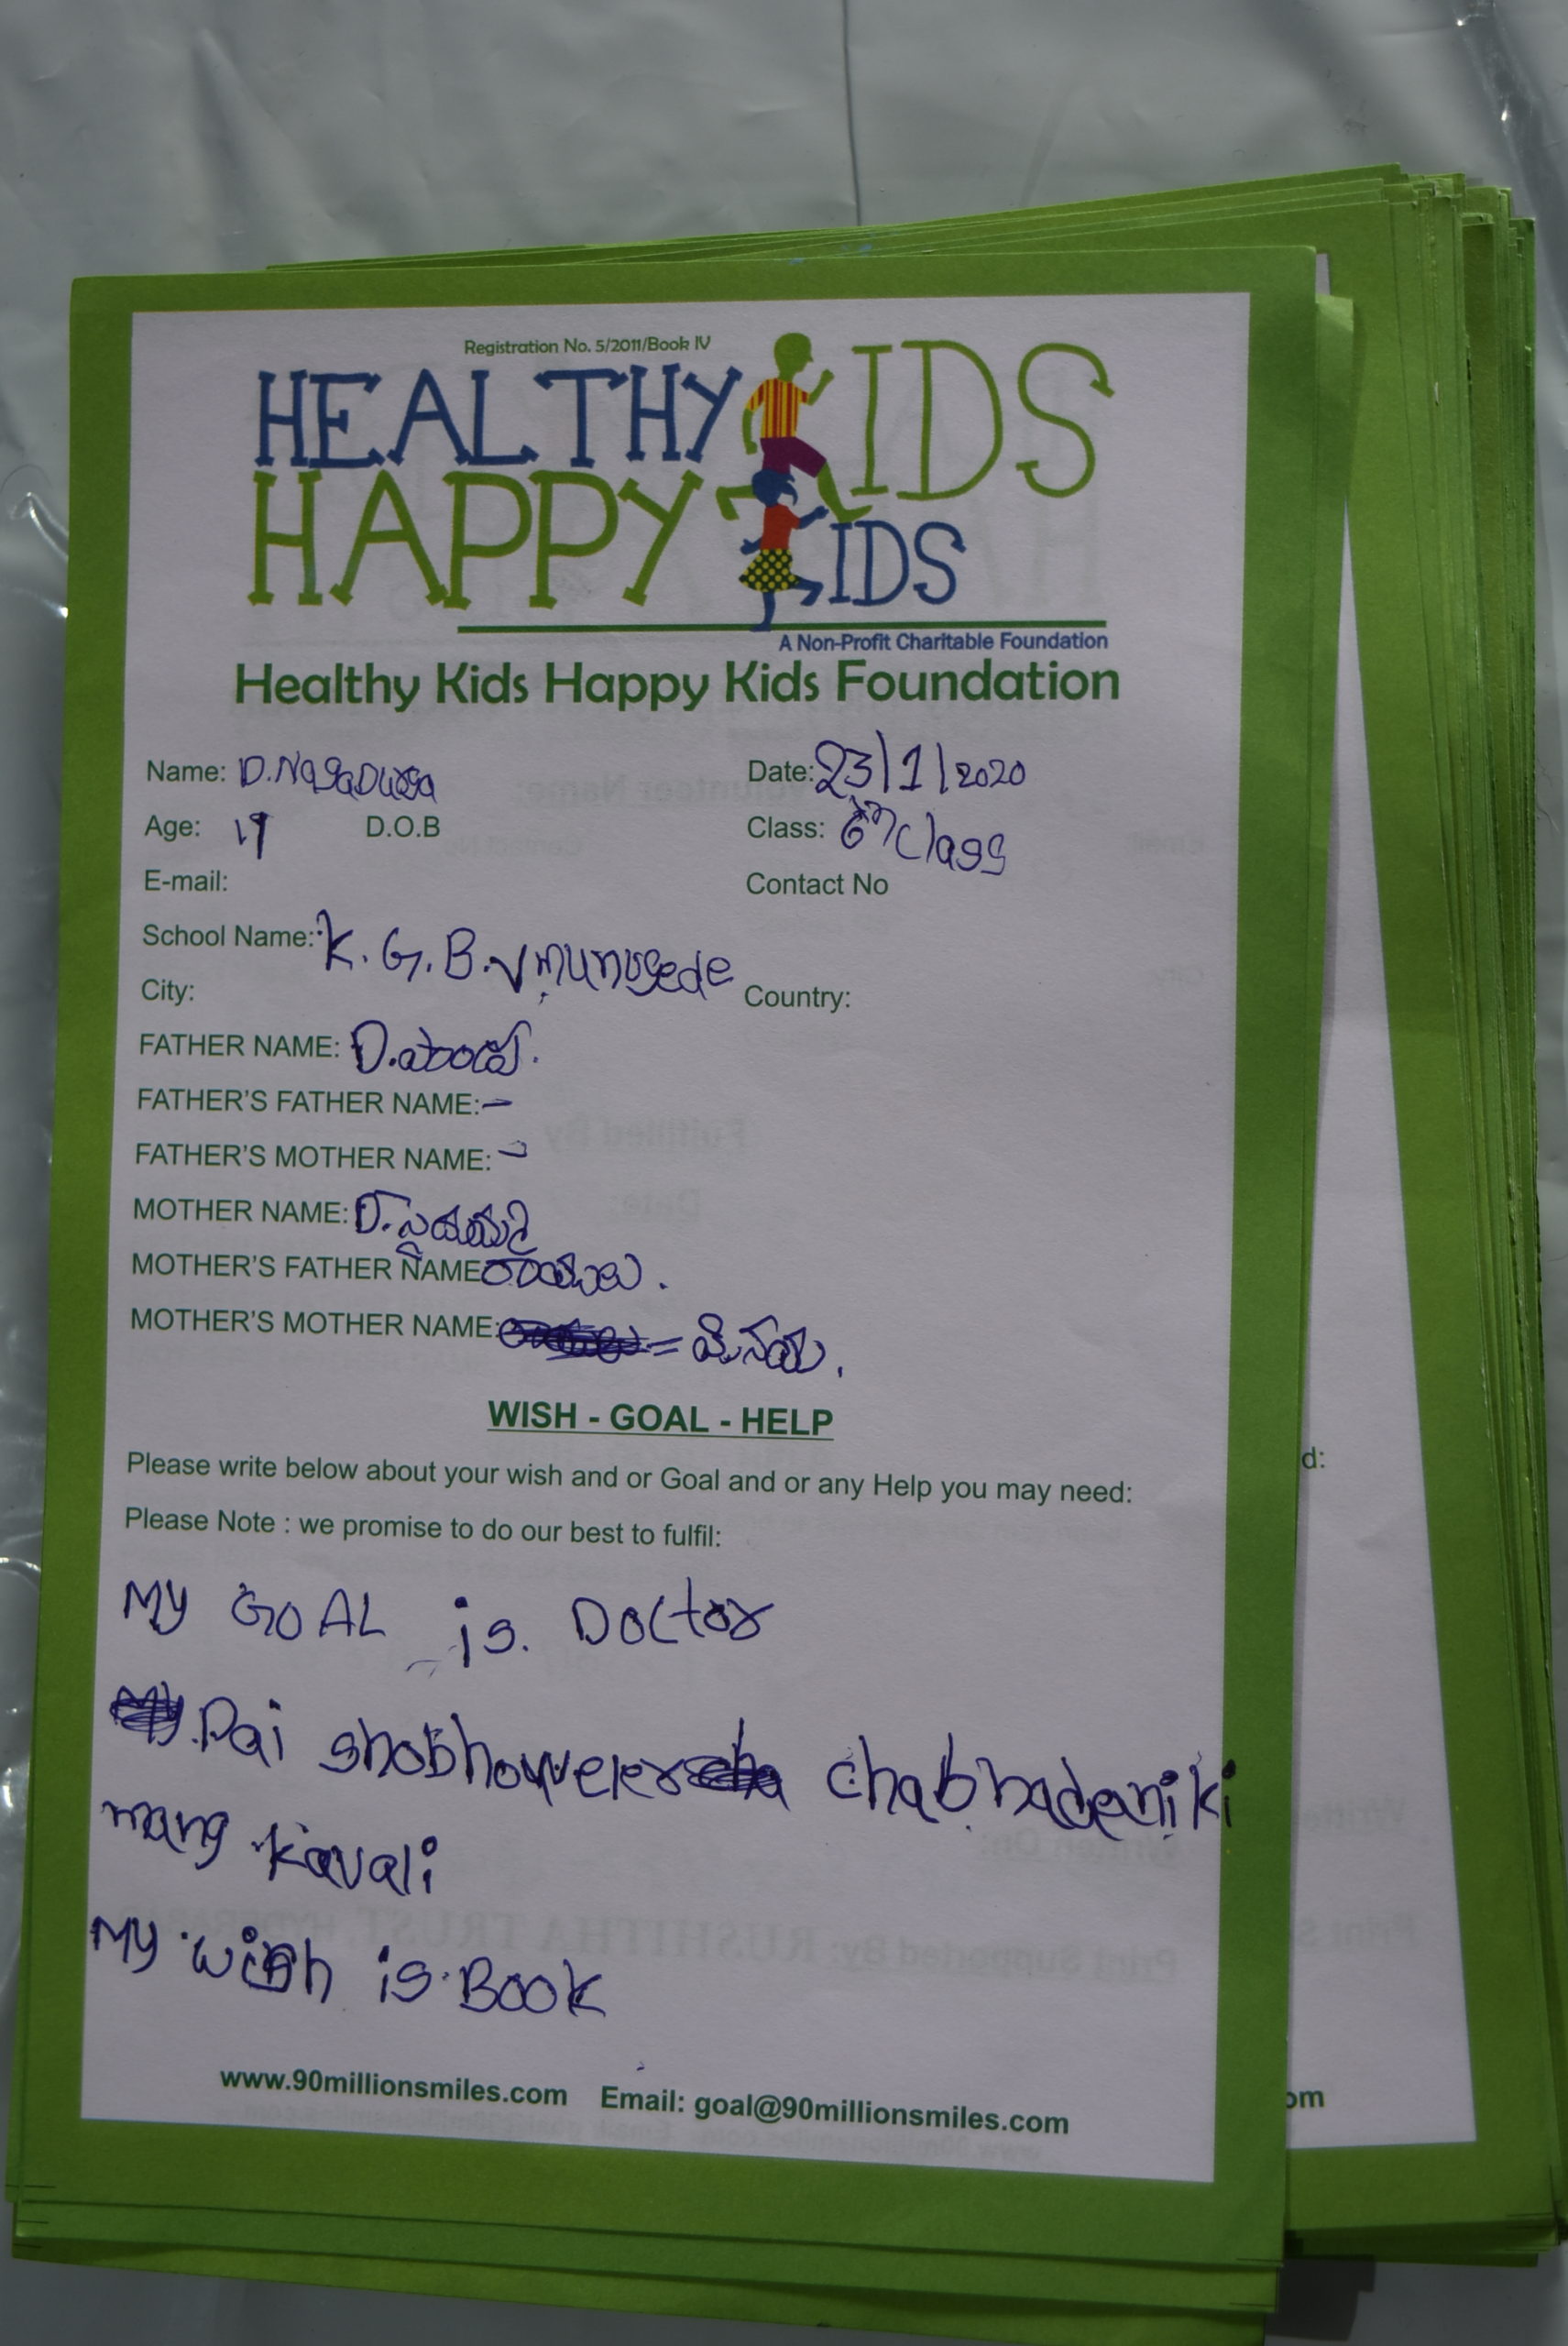 Registration No. 5/2011/Book IV
HEALTHY KIDS
HAPPY KIDS
A Non-Profit Charitable Foundation
Healthy Kids Happy Kids Foundation
Name: D.NagaDurga Date: 23/1/2020
Age: 19 D.O.B Class: 6th class
E-mail: Contact No
School Name: K.G.B.V munugode
City: Country:
FATHER NAME: D.
FATHER'S FATHER NAME: -
FATHER'S MOTHER NAME: -
MOTHER NAME: D.
MOTHER'S FATHER NAME
MOTHER'S MOTHER NAME: =
WISH - GOAL - HELP
Please write below about your wish and or Goal and or any Help you may need:
Please Note : we promise to do our best to fulfil:
MY GOAL is. Doctor
Pai chabhadaniki
mang kavali
MY wish is Book
www.90millionsmiles.com Email: goal@90millionsmiles.com
d:
om